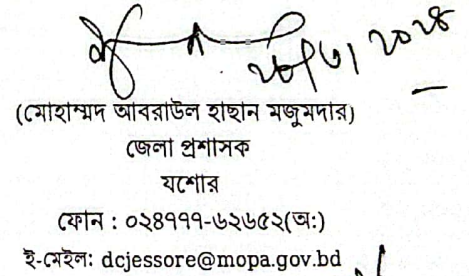 (মোহাম্মদ আবরাউল হাছান মজুমদার)
জেলা প্রশাসক
যশোর
ফোন : ০২৪৭৭৭-৬২৬৫২(অ:)
ই-মেইল: dcjessore@mopa.gov.bd